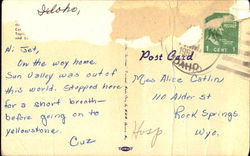 Idaho,
Hi Jet,
On the way home.
Sun Valley was out of
this world. Stopped here
for a short breath—
before going on to
yellowstone.
Cuz
Post Card
1 CENT 1
IDAHO
Miss Alice Catlin
110 Alder St
Rock Springs
Wyo.